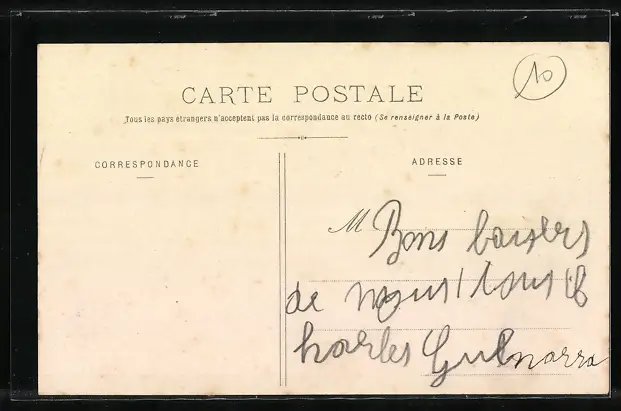 10
CARTE POSTALE
Tous les pays étrangers n'acceptent pas la correspondance au recto (Se renseigner à la Poste)
CORRESPONDANCE
ADRESSE
M Bons baisers
de nous tous C
harles